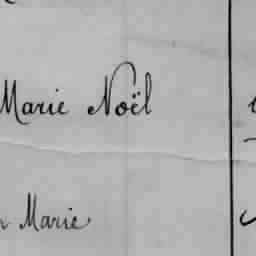 Marie Noël
Marie